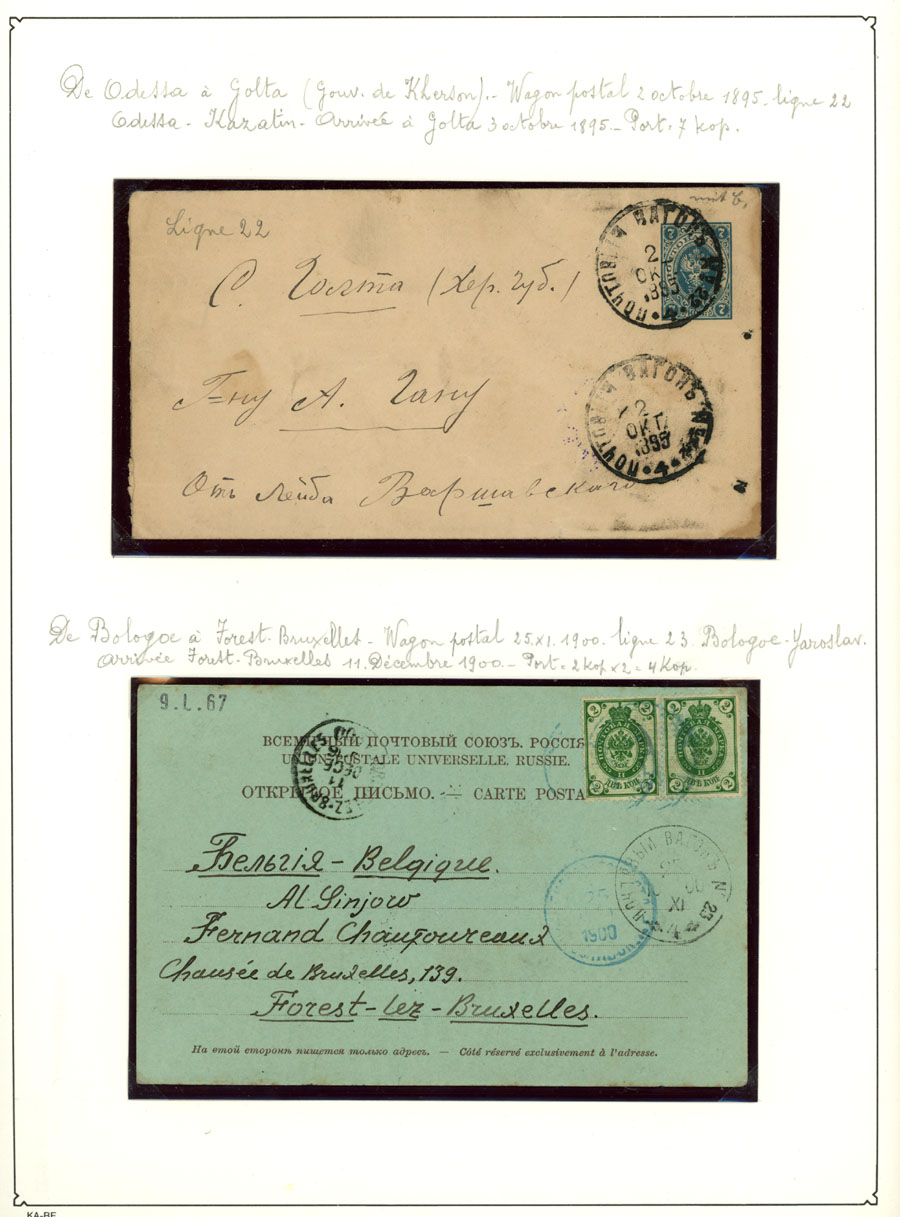 De Odessa à Golta (Gouv. de Kherson).- Wagon postal 2 octobre 1895. ligne 22
Odessa - Kazatin - Arrivée à Golta 3 octobre 1895.- Port: 7 kop.
Ligne 22
ПОЧТОВЫЙ ВАГОНЪ № 22
2
ОКТ
1895
4
7
С. Голта (Хер. губ.)
Г-ну А. Гану
ПОЧТОВЫЙ ВАГОНЪ №
2
ОКТ
1895
4
Отъ Лейба Варшавскаго
De Bologoe à Forest-Bruxelles - Wagon postal 25.XI.1900. ligne 23 Bologoe-Yaroslav.
Arrivée Forest-Bruxelles 11. Décembre 1900.- Port = 2 kop x 2 = 4 kop.
9.L.67
2 2 2 2
ДВѢ КОП. ДВѢ КОП.
ВСЕМІРНЫЙ ПОЧТОВЫЙ СОЮЗЪ. РОССІЯ
UNION POSTALE UNIVERSELLE. RUSSIE.
ОТКРЫТОЕ ПИСЬМО. — CARTE POSTA
11
DEC
Бельгія - Belgique.
Al Sinjoro
Fernand Chaufoureaux
Chausée de Bruxelles, 139.
Forest-lez-Bruxelles.
ПОЧТОВЫЙ ВАГОНЪ № 23
25
XI
25
1900
На этой сторонѣ пишется только адресъ. — Côté réservé exclusivement à l'adresse.
KA-BE